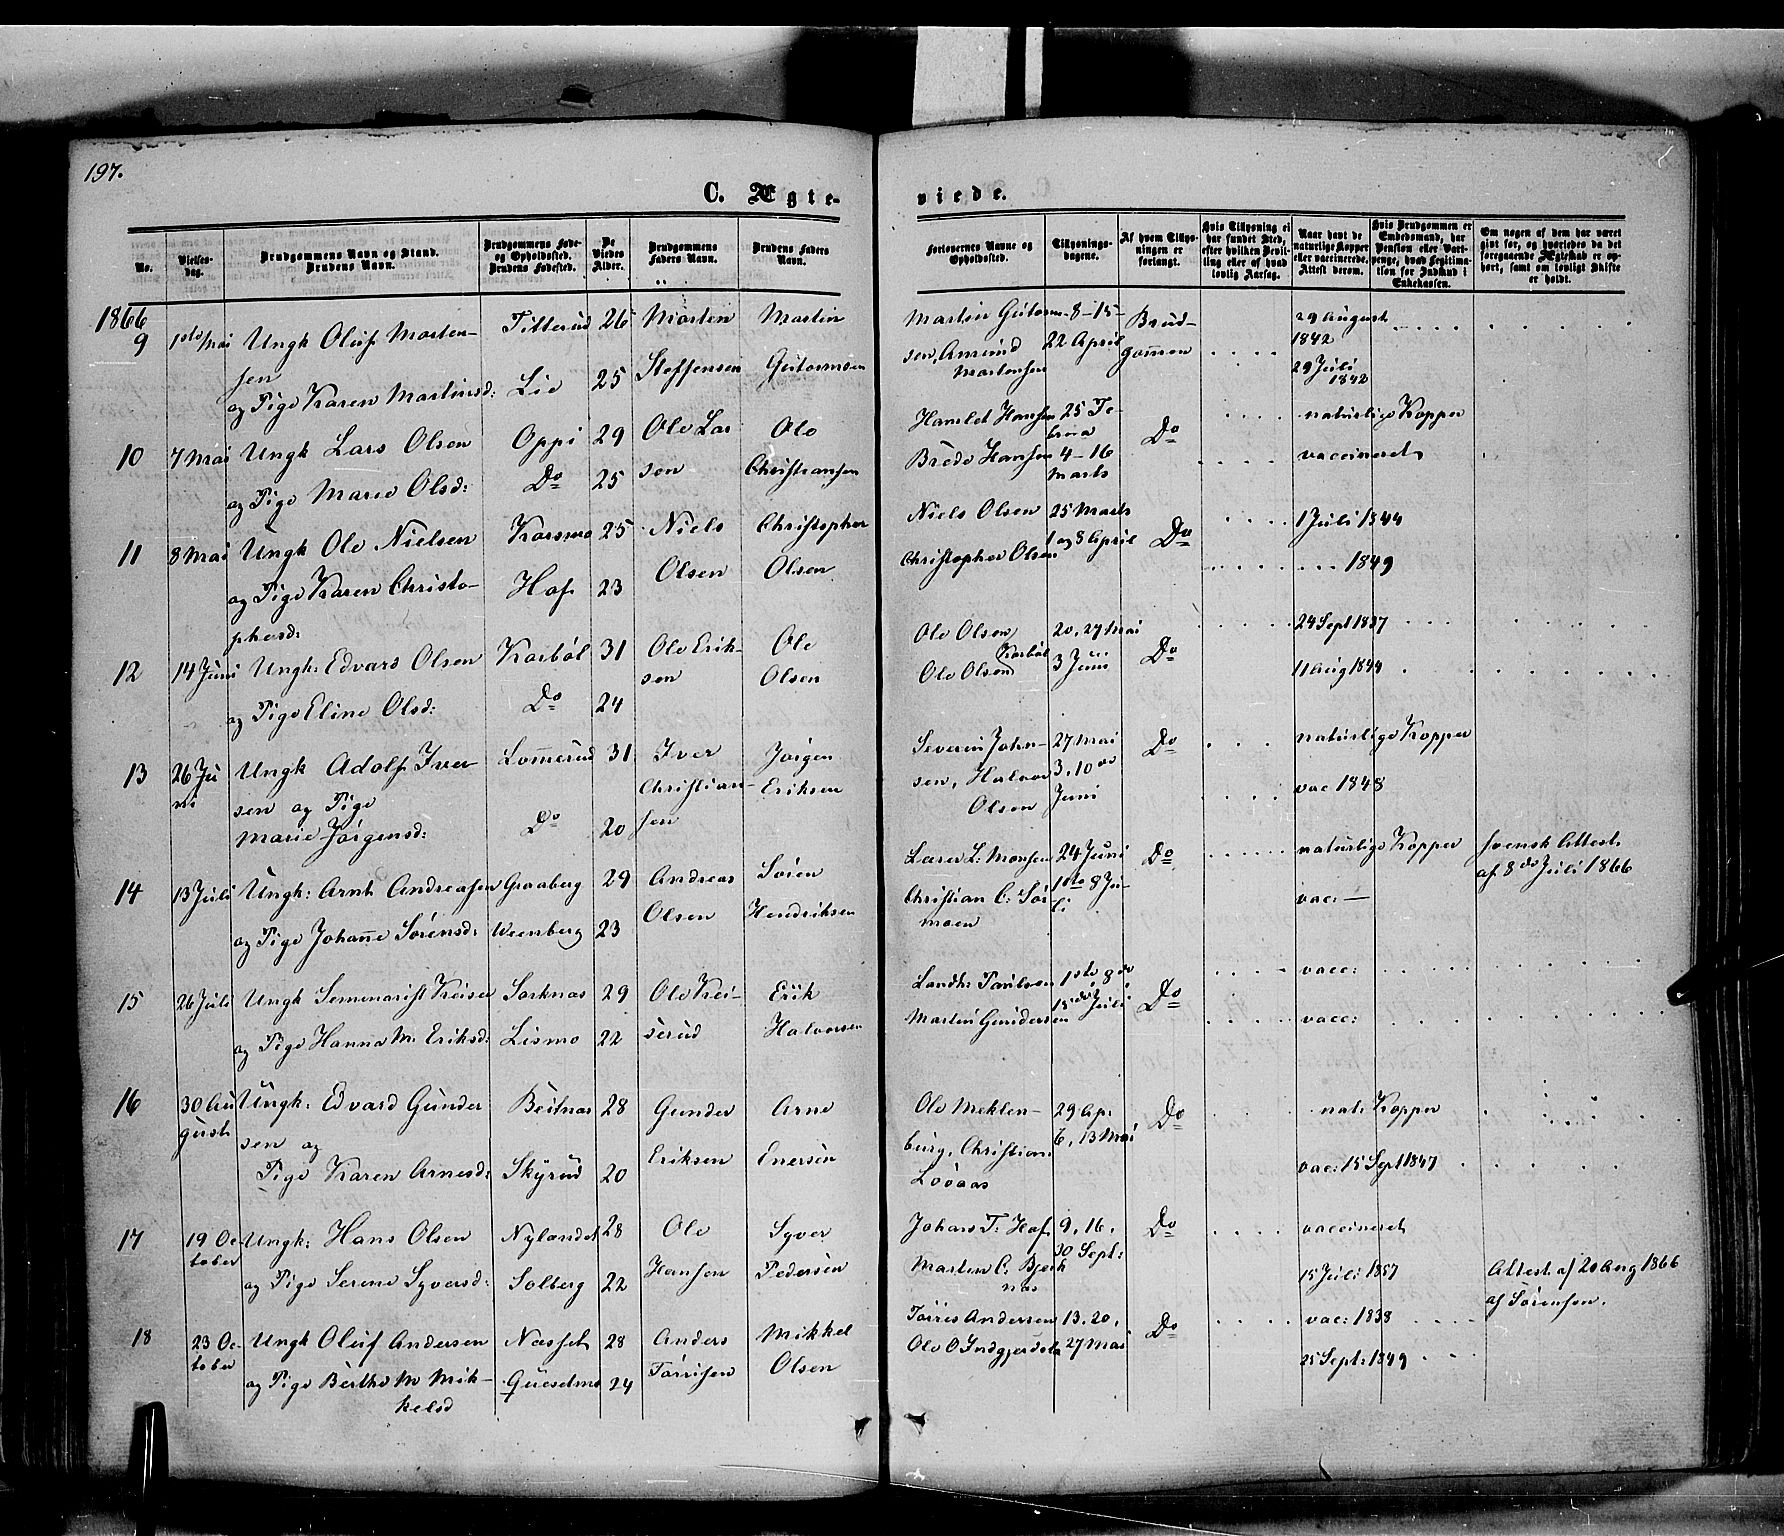 197.
C. Ægte-
viede.
No.
Vielses-
dag.
Brudgommens Navn og Stand.
Brudens Navn.
Brudgommens Føde-
og Opholdssted.
Brudens Fødested.
De
Viedes
Alder.
Brudgommens
Faders Navn.
Brudens Faders
Navn.
Forlovernes Navne og
Opholdssted.
Tillysnings-
dagene.
Af hvem Tillys-
ningen er
forlangt.
Hvis Tillysning ei
har fundet Sted,
efter hvilken Bevil-
ling eller af hvad
lovlig Aarsag.
Naar havt de
naturlige Kopper
eller vaccinerede.
Attest derom.
Hvis Brudgommen er
Embedsmand, har
Pension eller Vart-
penge, hvad Legitima-
tion for Indskud i
Enkekassen.
Om nogen af dem har været
givt før, og hvorledes da det
foregaaende Ægteskab er op-
hørt, samt om lovligt Skifte
er holdt.
1866
9 1ste Mai Ungk Oluf Morten- Titterud 26 Morten Martin Martin Gutorm- 8-15- Brud- 29 August
sen 22 April gommen 1842
og Pige Karen Martinsd: Lie 25 Steffensen Gutormsen sen, Amund Martensen 29 Juli 1842
10 7 Mai Ungk Lars Olsen Oppi 29 Ole Lar Ole Hamlet Hansen 25 Fe- Do naturlige Kopper
og Pige Marie Olsd: Do 25 sen Christiansen Brede Hansen 4-16 vaccineret
Marts
11 8 Mai Ungk Ole Nielsen Korsmo 25 Niels Christopher Niels Olsen 25 Marts Do 1 Juli 1844
og Pige Karen Christo- Hof 23 Olsen Olsen Christopher Olsen 1 og 8 April 1849
phersd:
12 14 Juni Ungk: Edvars Olsen Korbøl 31 Ole Erik- Ole Ole Olsen 20, 27 Mai Do 24 Sept 1837
og Pige Eline Olsd: Do 24 sen Olsen Ole Olsen Korbøl 3 Juni 11 Aug 1844
13 26 Ju Ungk Adolf Iver Lomerud 31 Iver Jørgen Severin John- 27 Mai Do naturlige Kopper
ni sen og Pige Christian- Eriksen sen, Halvor 3, 10de vac 1848
Marie Jørgensd: Do 20 sen Olsen Juni
14 13 Juli Ungk: Arnt Andreasen Graaberg 29 Andreas Søren Lærer L: Monsen 24 Juni Do naturlige Kopper svensk Attest
af 8de Juli 1866
og Pige Johanne Sørensd: Weenberg 23 Olsen Hendriksen Christian C: Sør 1ste 8 Ju- vac: —
moen li
15 26 Juli Ungk Semenarist Keiser Sorknæs 29 Ole Kei- Erik Landh: Paulsen 1ste 8de Do vacc:
og Pige Hanna M. Eriksd: Lismo 22 serud Halvorsen Martin Gundersen 15de Juli vacc:
16 30 Au Ungk: Edvard Gunder Beitnæs 28 Gunder Arne Ole Meklen- 29 Ap: Do nat: Kopper
gust sen og burg, Christian 6, 13 Mai
Pige Karen Arnesd: Skyrud 20 Eriksen Enersen Løvaas vac: 15 Sept 1847
17 19 Oc- Ungk: Hans Olsen Nylandet 28 Ole Syver Johans T: Hof 9, 16, Do vaccineret
tober 30 Sept:
og Pige Serene Syversd: Solberg 22 Hansen Pedersen Martin C: Bjerk 15 Juli 1857 Attest af 20 Aug 1866
næs af Sørensen.
18 23 Oc- Ungk Oluf Andersen Næsset 28 Anders Mikkel Tørris Andersen 13, 20, Do vac: 1838
tober og Pige Berthe M Mik- 24 Tørrisen Olsen Ole O Indgjerdet 27 Mai 25 Sept: 1849
kelsd